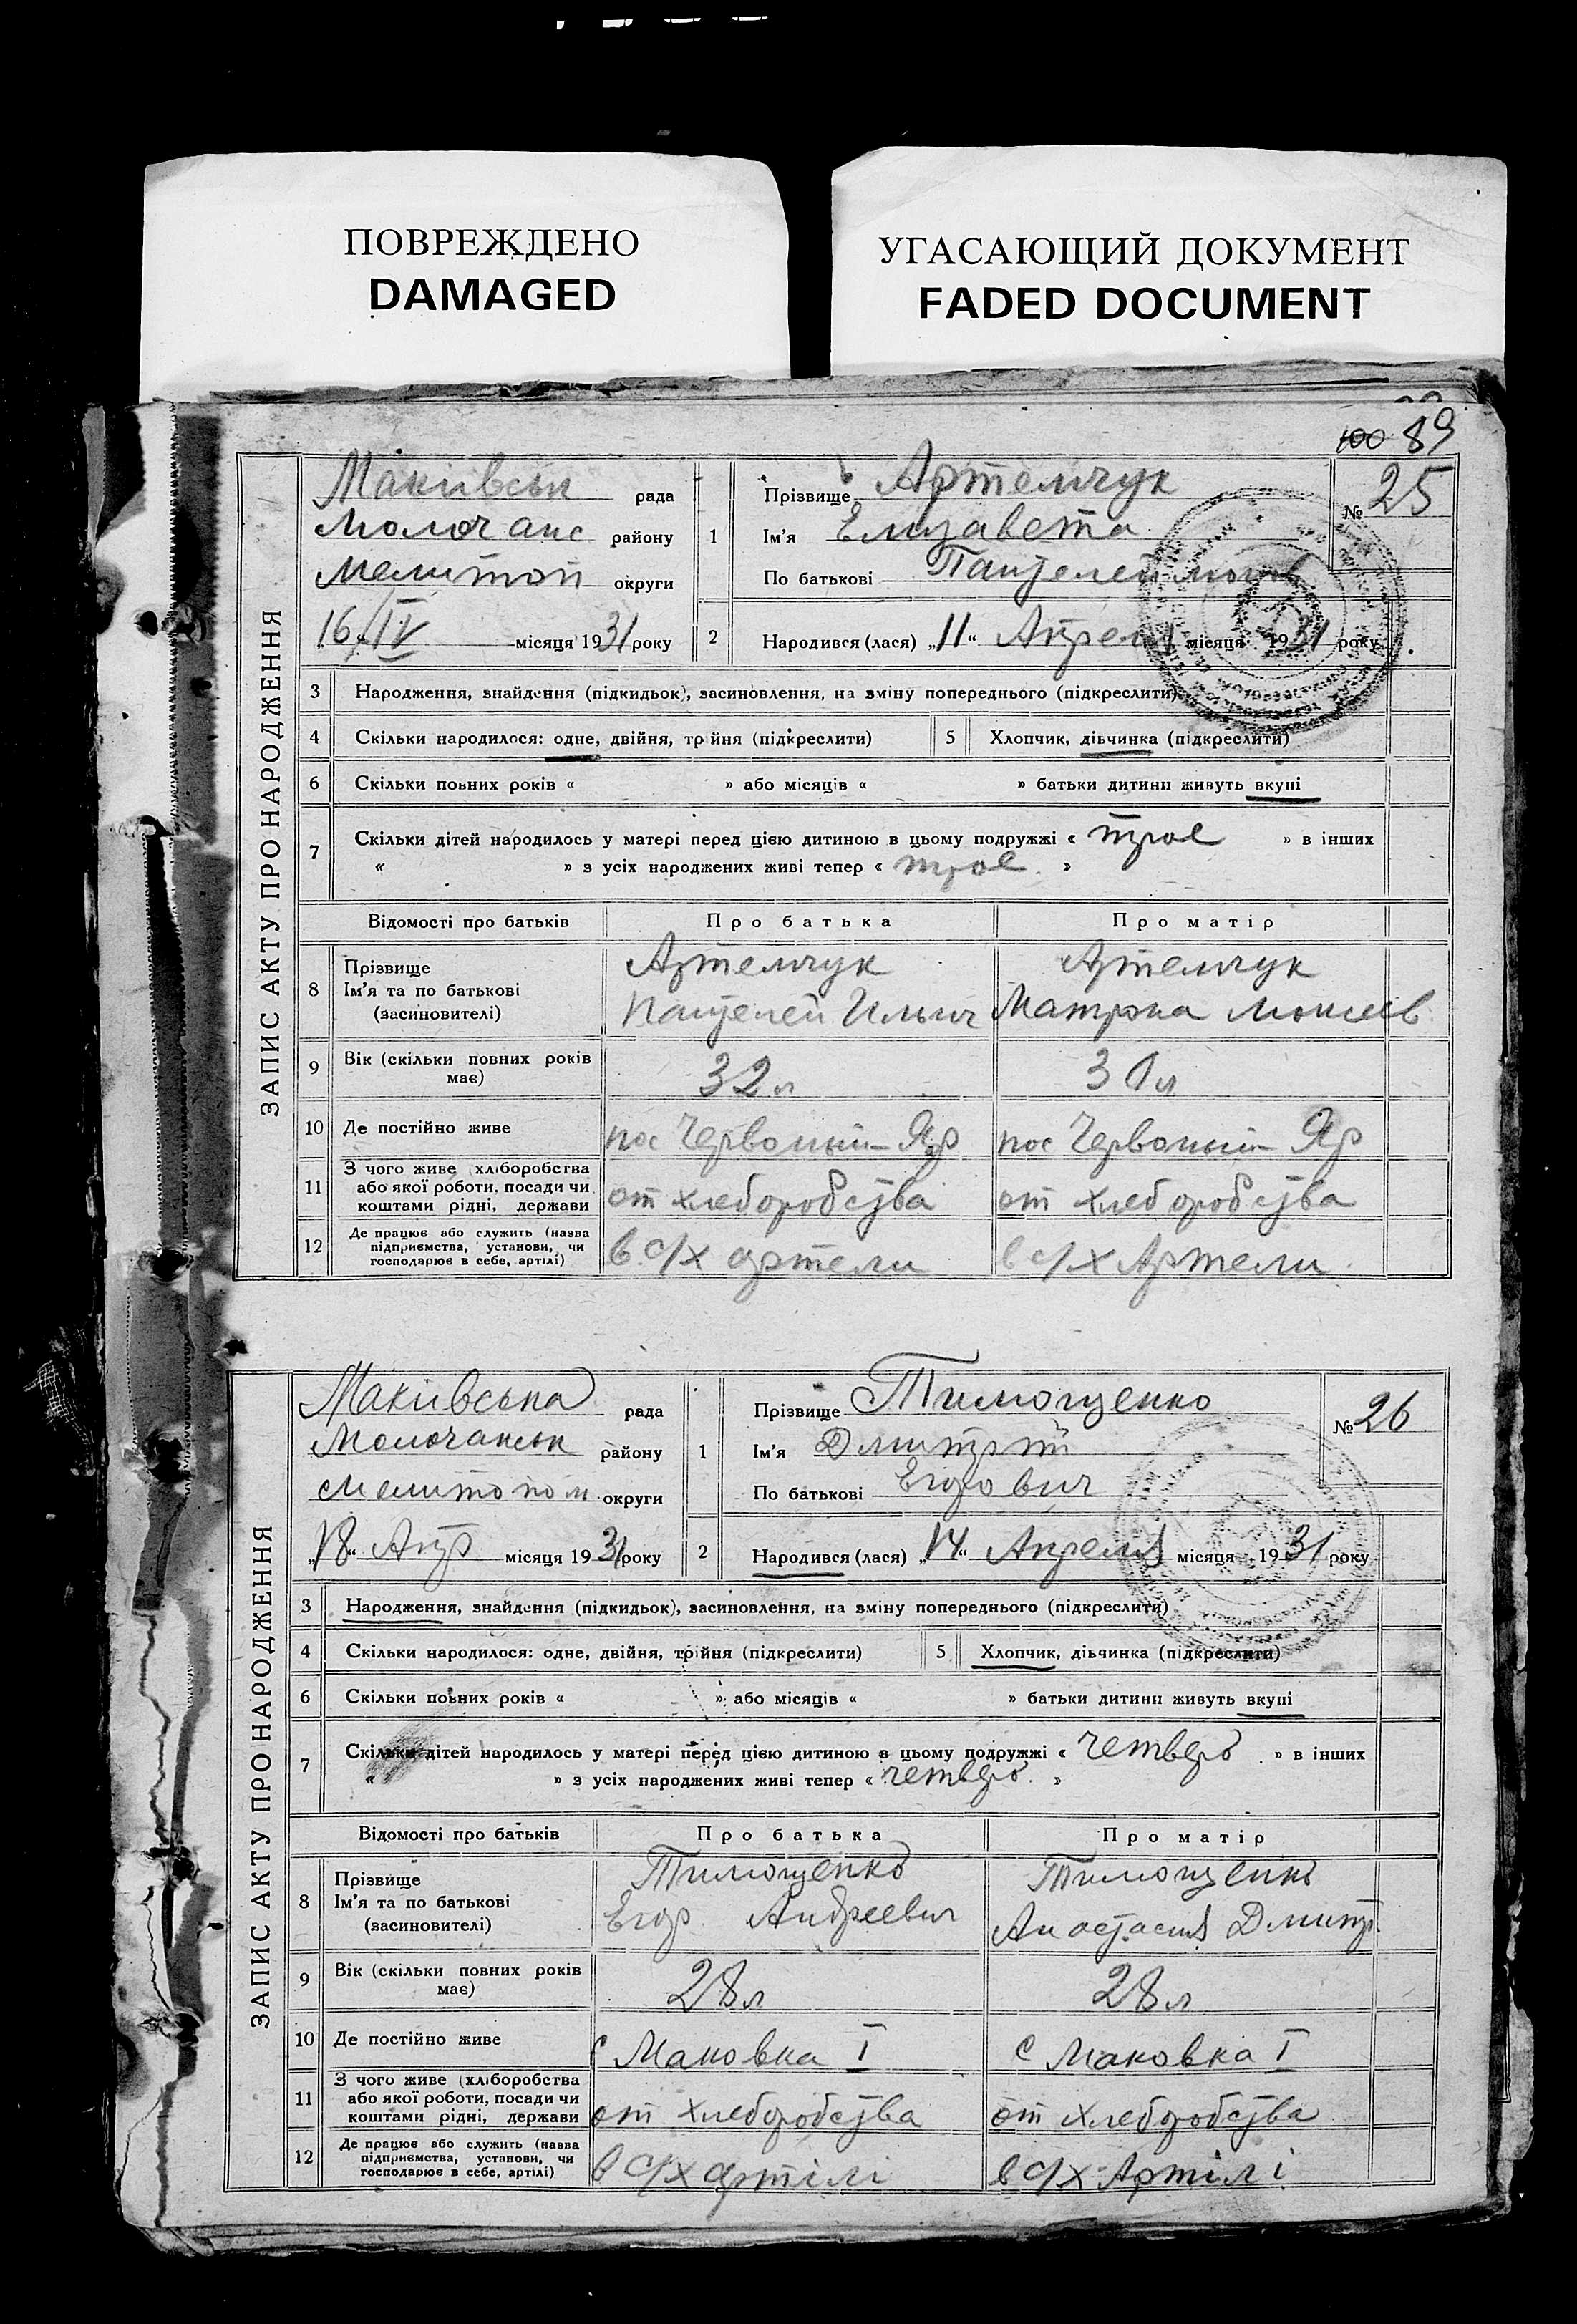 ПОВРЕЖДЕНО
DAMAGED
УГАСАЮЩИЙ ДОКУМЕНТ
FADED DOCUMENT
100 89
ЗАПИС АКТУ ПРО НАРОДЖЕННЯ
Макиівськ рада
Молочанс району
Мелитоп округи
16/IV місяця 1931 року
1 Прізвище Артемчук
№ 25
Ім'я Елизавета
По батькові Пантелеймон
2 Народився (лася) „11“ Апреля місяця 1931 року
3 Народження, знайдення (підкидьок), засиновлення, на зміну попереднього (підкреслити)
4 Скільки народилося: одне, двійня, трійня (підкреслити) 5 Хлопчик, дівчинка (підкреслити)
6 Скільки повних років « » або місяців « » батьки дитини живуть вкупі
7 Скільки дітей народилось у матері перед цією дитиною в цьому подружжі « трое » в інших
« » з усіх народжених живі тепер « трое »
Відомості про батьків Про батька Про матір
8 Прізвище Артемчук Артемчук
Ім'я та по батькові Пантелей Ильич Матрона
(засиновителі)
9 Вік (скільки повних років має) 32 л 31 л
10 Де постійно живе пос Червоный Яр пос Червоный Яр
11 З чого живе (хліборобства
або якої роботи, посади чи
коштами рідні, держави от хлеборобства от хлеборобства
12 Де працює або служить (назва
підприємства, установи, чи
господарює в себе, артілі) в с/х артели в с/х Артели
ЗАПИС АКТУ ПРО НАРОДЖЕННЯ
Макиівська рада
Молочанськ району
Мелитопол округи
„18“ Апр місяця 1931 року
1 Прізвище Тимощенко
№ 26
Ім'я Дмитрий
По батькові Егорович
2 Народився (лася) „14“ Апреля місяця 1931 року
3 Народження, знайдення (підкидьок), засиновлення, на зміну попереднього (підкреслити)
4 Скільки народилося: одне, двійня, трійня (підкреслити) 5 Хлопчик, дівчинка (підкреслити)
6 Скільки повних років « » або місяців « » батьки дитини живуть вкупі
7 Скільки дітей народилось у матері перед цією дитиною в цьому подружжі « четверо » в інших
« » з усіх народжених живі тепер « четверо »
Відомості про батьків Про батька Про матір
8 Прізвище Тимощенко Тимощенко
Ім'я та по батькові Егор Андреевич Анастасия Дмитр.
(засиновителі)
9 Вік (скільки повних років має) 28 л 28 л
10 Де постійно живе с Маковка I с Маковка I
11 З чого живе (хліборобства
або якої роботи, посади чи
коштами рідні, держави от хлеборобства от хлеборобства
12 Де працює або служить (назва
підприємства, установи, чи
господарює в себе, артілі) в с/х артілі в с/х Артілі